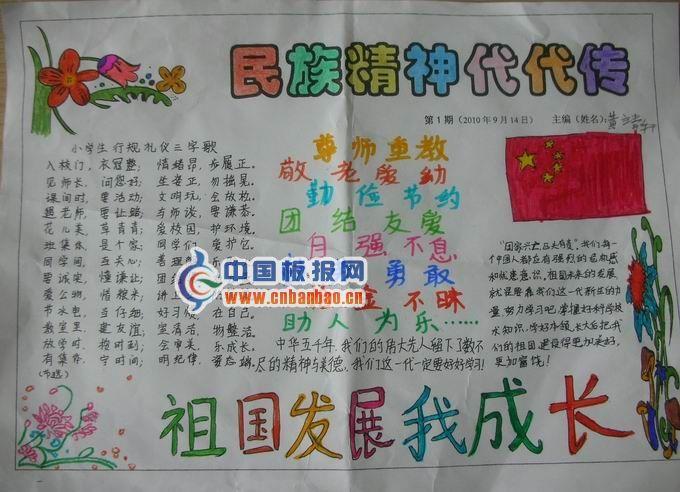 民族精神代代传
第1期（2010年9月14日） 主编（姓名）：黄
小学生行规礼仪三字歌
入校门，衣冠整； 情绪昂，步履正。
见师长，问您好； 坐姿正，勿摇晃。
课间时，要活动； 文明玩，
遇老师，要让路； 与师谈，要谦恭。
花儿美，草青青； 爱校园，护环境。
班集体，是个家； 同学们，爱护它。
同学间，互关心； 善理
要诚实，懂谦让； 团
爱公物，惜粮来； 讲卫
节水电，当仔细； 好习惯，在自己。
教室里，建友谊； 室清洁，物整洁。
放学时，按时到； 会审美，乐成长。
有集体，守时间； 明纪律，
（节选）
尊师重教
敬老爱幼
勤俭节约
团结友爱
自强不息
勇敢
金不昧
助人为乐……
中华五千年，我们的伟大先人留下了数不
尽的精神与美德，我们这一代一定要好好学习！
"国家兴亡，匹夫有责"，我们每一
个中国人都应有强烈的危机感
和忧患意识，祖国未来的发展，
就是要靠我们这一代新生的力
量，努力学习吧，掌握好科学技
术知识，学好本领，长大后把我
们的祖国建设得更加美好，
更加富饶！
中国板报网
www.cnbanbao.cn
祖国发展我成长